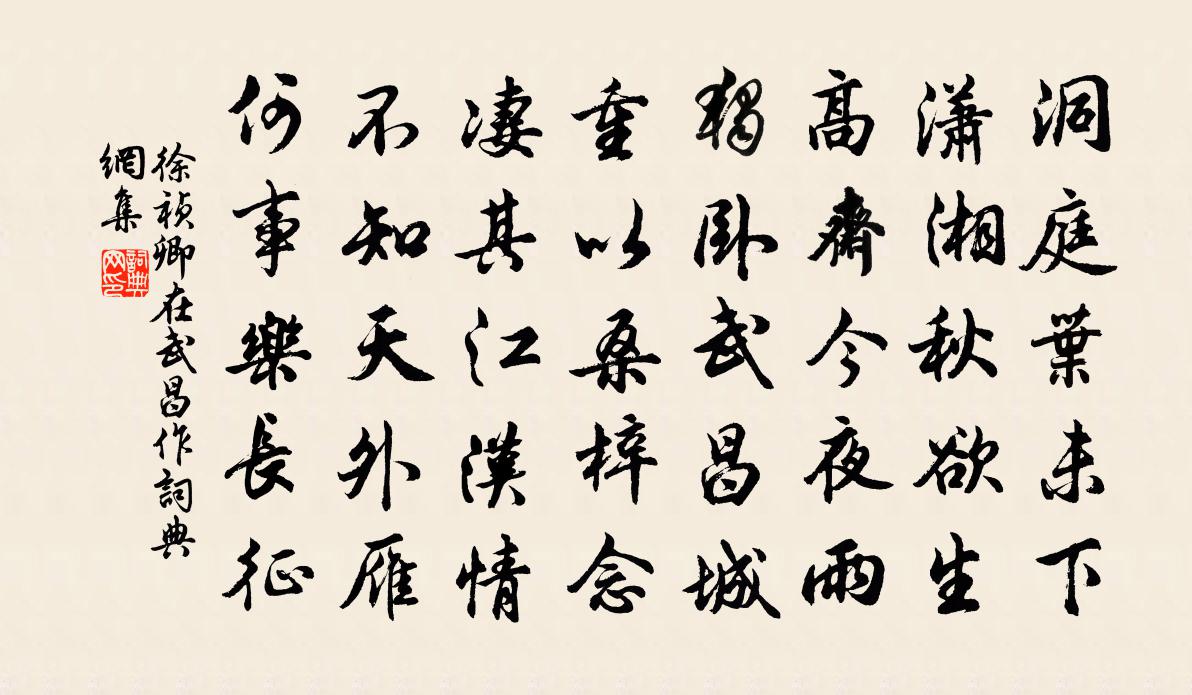 洞庭葉未下
瀟湘秋欲生
高齋今夜雨
獨卧武昌城
重以桑梓念
淒其江漢情
不知天外雁
何事樂長征
徐禎卿在武昌作詞典
網集
詞典
网印